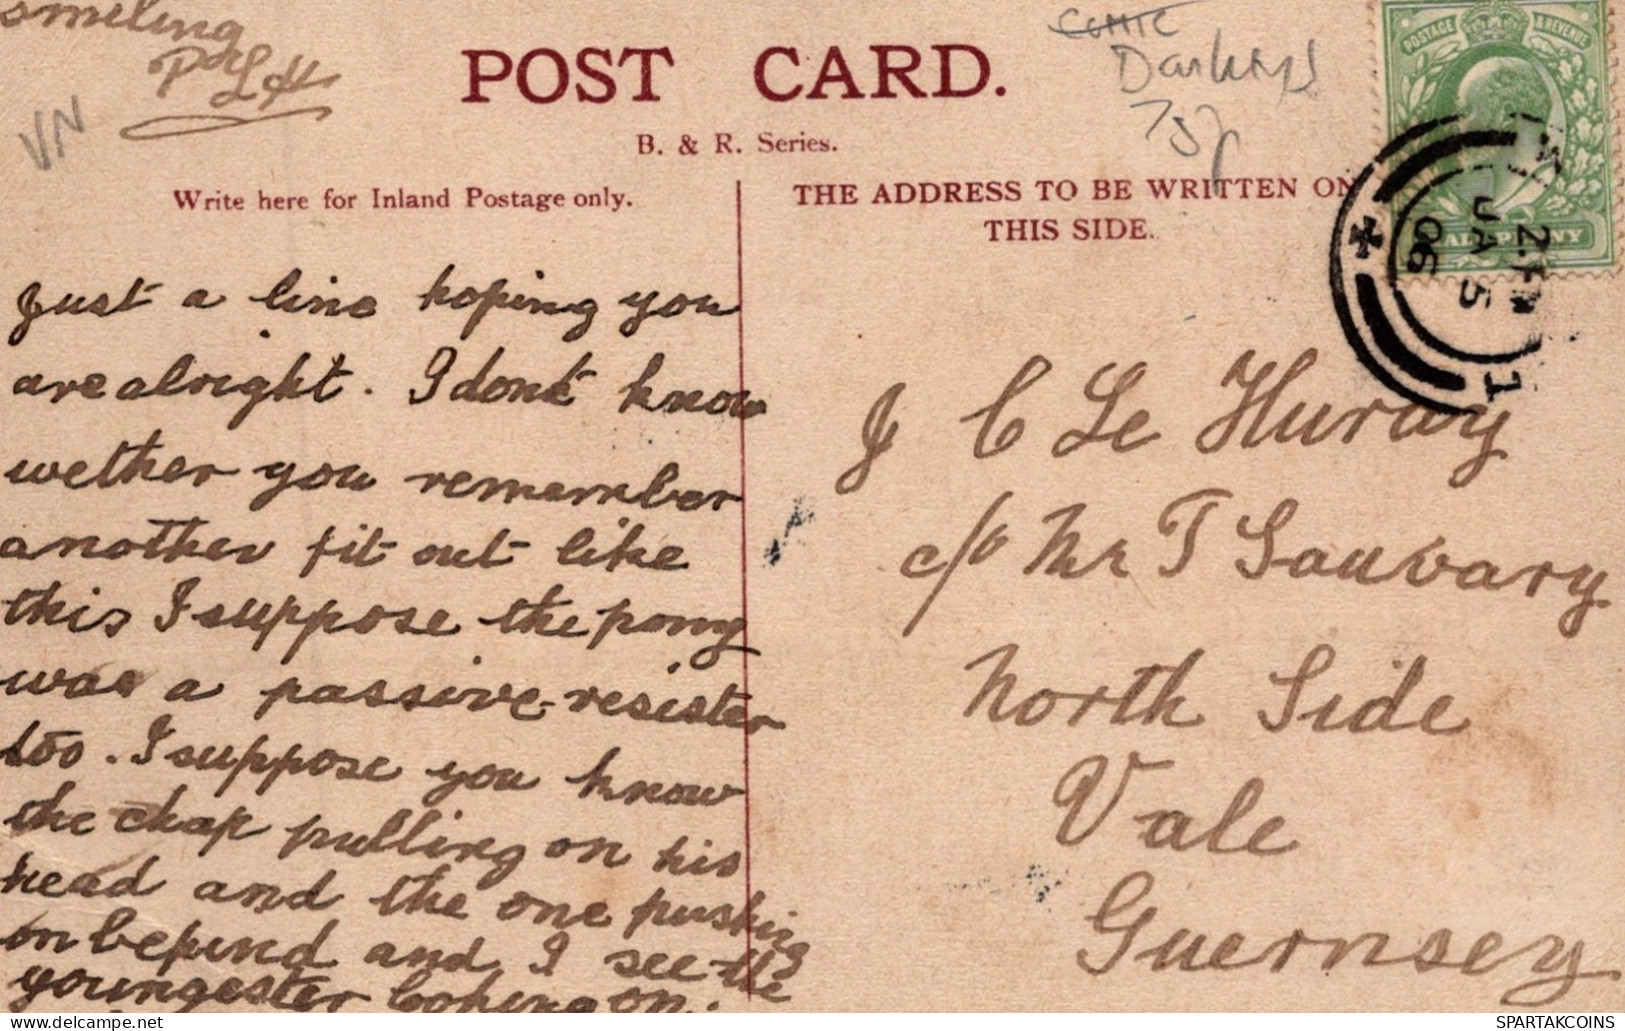 smiling
P L H
VN
POST CARD.
B. & R. Series.
comic
75p
POSTAGE & REVENUE
HALFPENNY
Write here for Inland Postage only.
THE ADDRESS TO BE WRITTEN ON
THIS SIDE.
2
JA 5
06
1
Just a line hoping you
are alright. I dont know
wether you remember
another fit out like
this I suppose the pony
was a passive-resister
too. I suppose you know
the chap pulling on his
head and the one pushing
on behind and I see the
youngester looking on.
J C Le Huray
c/o Mr T Sauvary
North Side
Vale
Guernsey
SPARTAKCOINS
delcampe.net